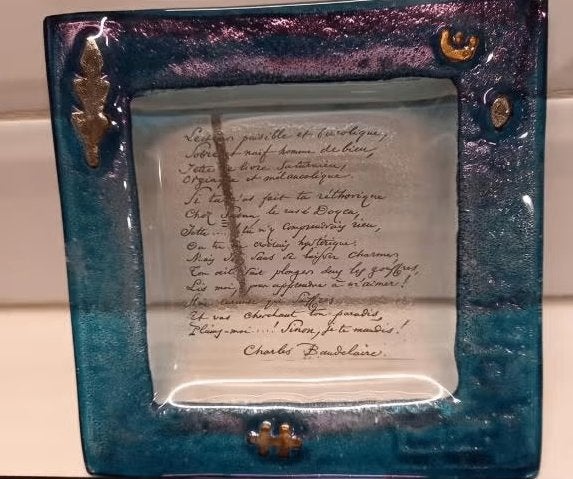 paisible et bucolique,
Sobre et naïf homme de bien,
Jette ce livre Saturnien,
et mélancolique.
Si tu n'as fait ta réthorique
Chez Satan, le rusé Doyen,
Jette .... tu n'y comprendrais rien,
Ou tu me croirais hystérique.
Mais Sans se laisser charmer,
Ton œil Sait plonger dans les gouffres,
Lis moi, pour apprendre à m'aimer !
curieuse qui Souffres
Et vas cherchant ton paradis,
Plains-moi ...! Sinon, je te maudis !
Charles Baudelaire.